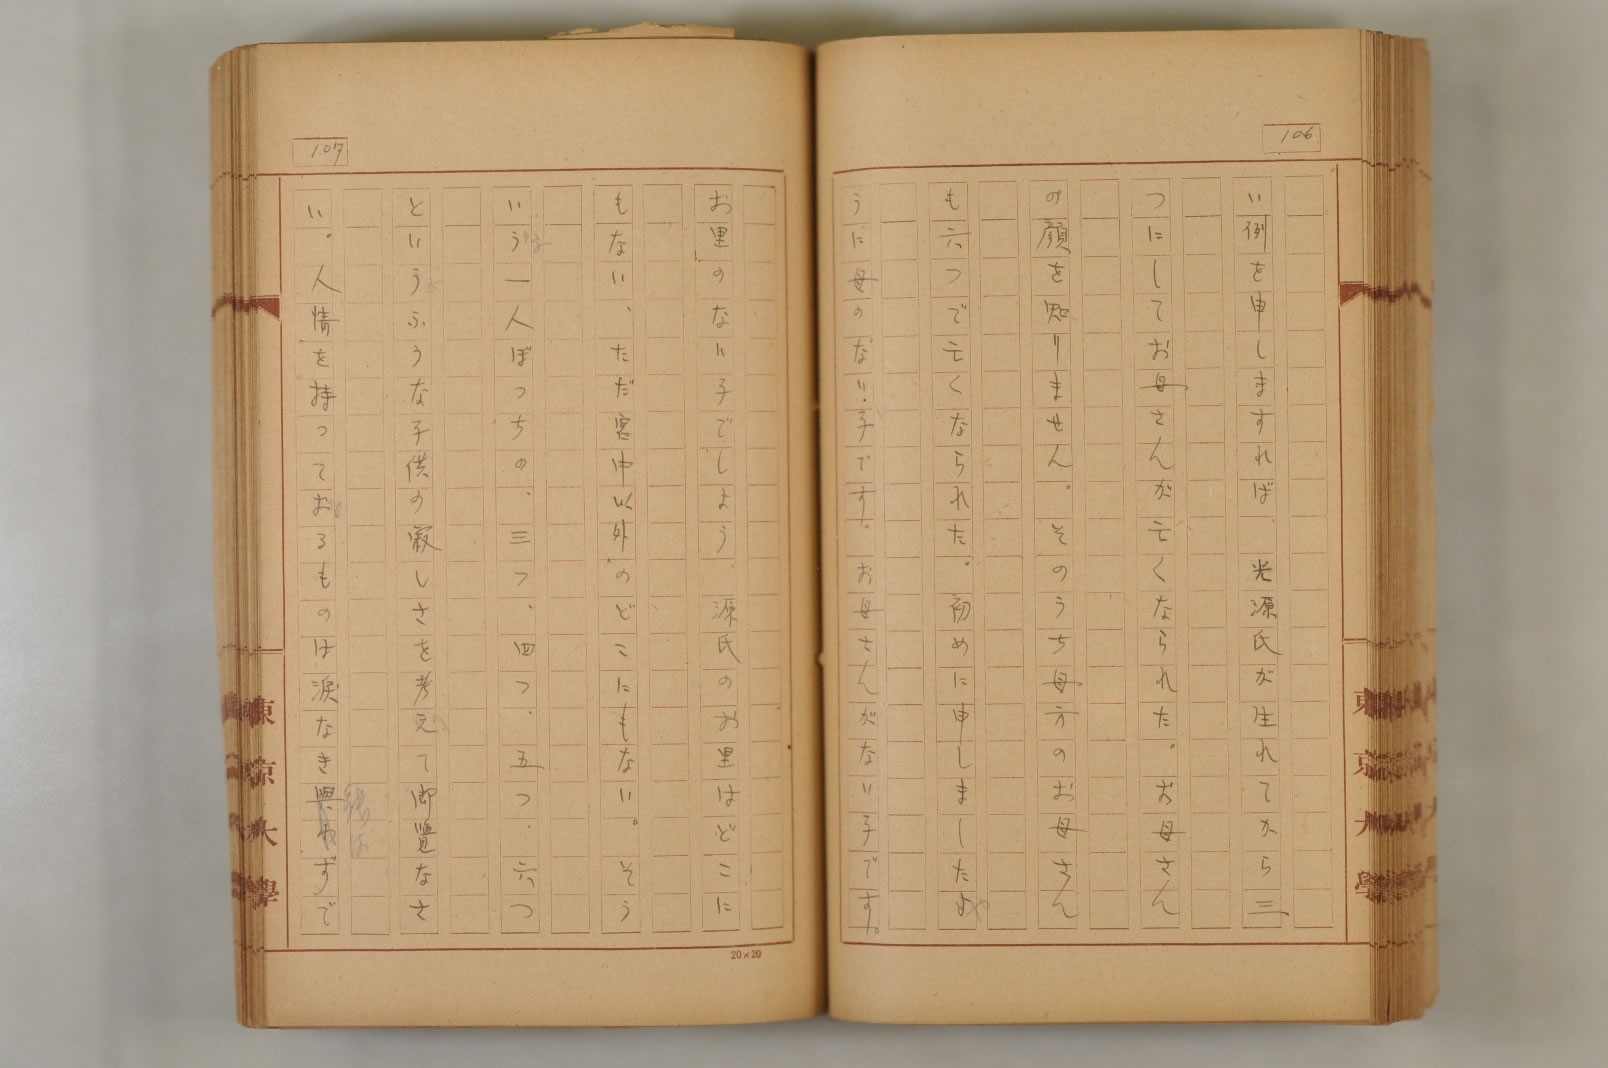 106
い例を申しますれば、光源氏が生れてから三
つにしてお母さんが亡くなられた。お母さん
の顔を知りません。そのうち母方のお母さん
も六つで亡くなられた。初めに申しましたよ
うに母のない子です。お母さんがない子です。
107
お里のない子でしよう。源氏のお里はどこに
もない、ただ宮中以外のどこにもない。そう
いう一人ぼつちの、三つ、四つ、五つ、六つ
というふうな子供の寂しさを考えて御覧なさ
い。人情を持つておるものは涙なき ずで
20×20
東京大學
東京大學